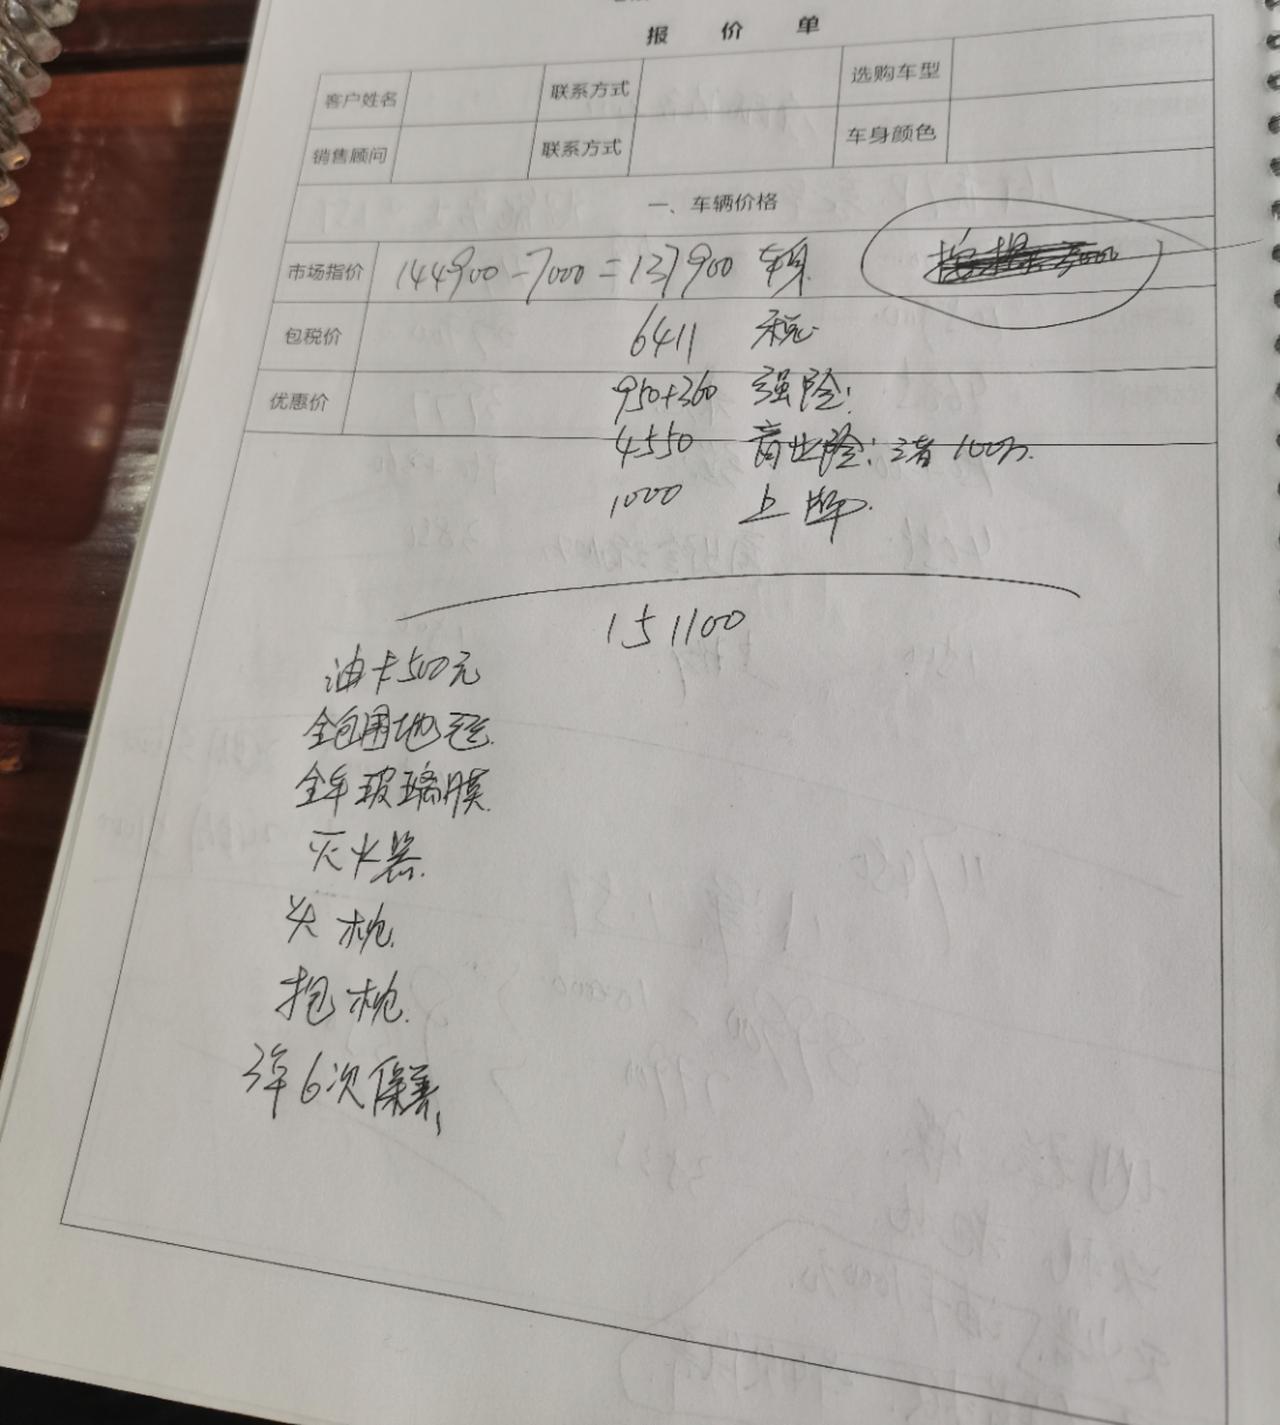 报 价 单
客户姓名 联系方式 选购车型
销售顾问 联系方式 车身颜色
一、车辆价格
市场指价 144900-7000=137900 车身
包税价 6411 税
优惠价 950+360 强险:
4550 商业险: 三者100万.
1000 上牌.
151100
油卡500元
全包围地毯.
全车玻璃膜.
灭火器.
头枕.
抱枕.
3年6次保养